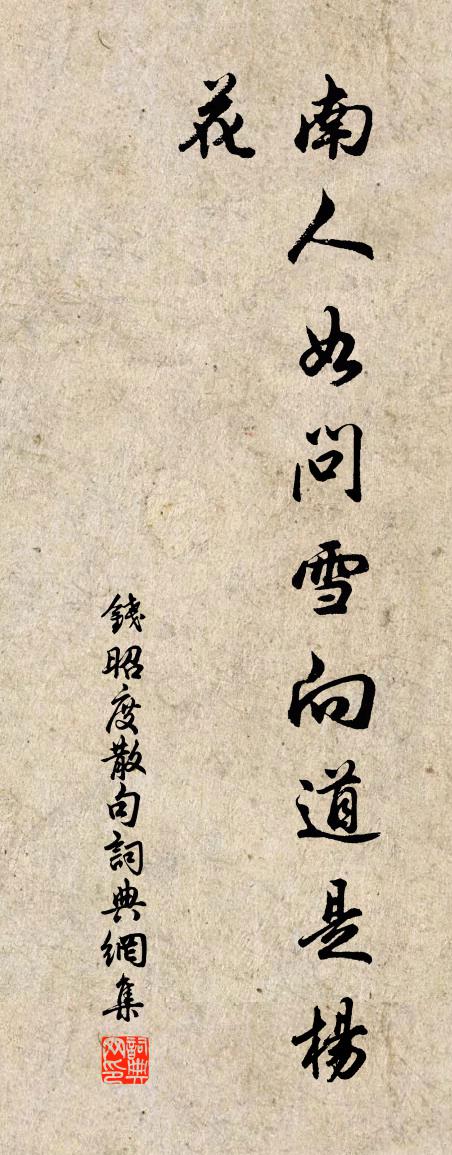 南人如問雪向道是楊
花
錢昭度散句詞典網集
詞典网印